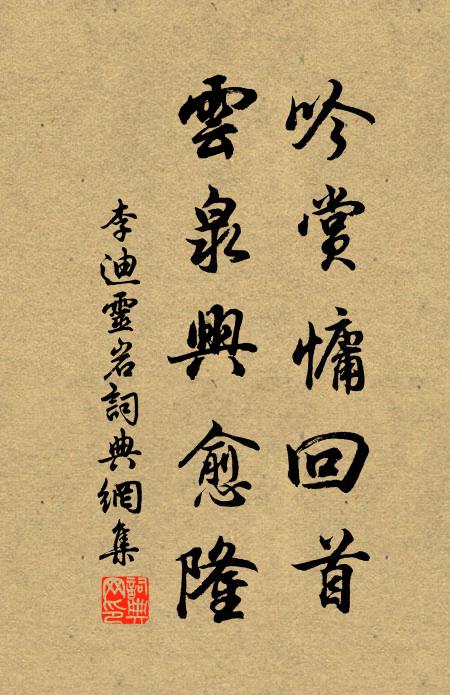 吟賞慵回首
雲泉興愈隆
李迪靈岩詞典網集
詞典網印